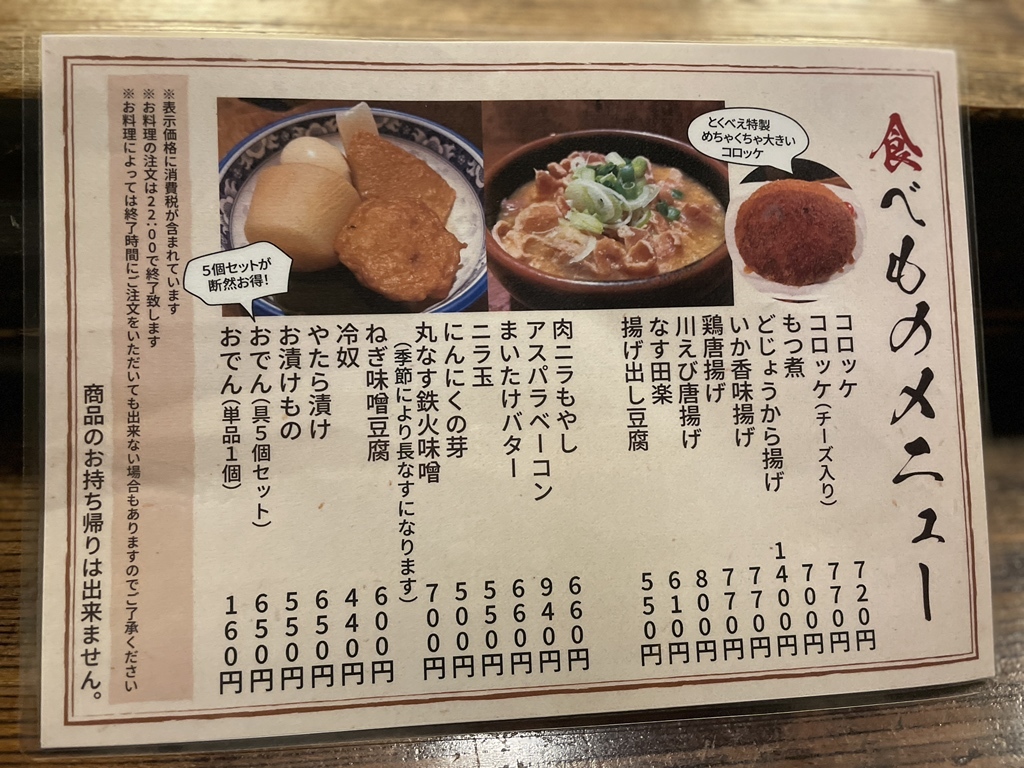 食べものメニュー
とくべえ特製
めちゃくちゃ大きい
コロッケ
コロッケ 720円
コロッケ(チーズ入り) 770円
もつ煮 700円
どじょうから揚げ 1400円
いか香味揚げ 770円
鶏唐揚げ 770円
川えび唐揚げ 800円
なす田楽 610円
揚げ出し豆腐 550円
肉ニラもやし 660円
アスパラベーコン 940円
まいたけバター 660円
ニラ玉 550円
にんにくの芽 500円
丸なす鉄火味噌 700円
(季節により長なすになります)
ねぎ味噌豆腐 600円
冷奴 440円
やたら漬け 650円
お漬けもの 550円
5個セットが
断然お得!
おでん(具5個セット) 650円
おでん(単品1個) 160円
※表示価格に消費税が含まれています
※お料理の注文は22:00で終了致します
※お料理によっては終了時間にご注文をいただいても出来ない場合もありますのでご了承ください
商品のお持ち帰りは出来ません。